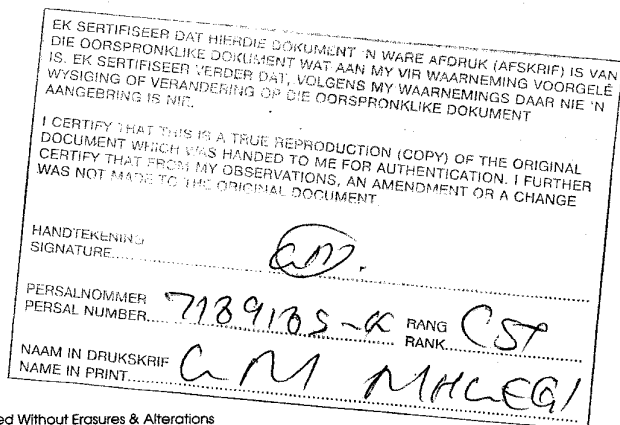 EK SERTIFISEER DAT HIERDIE DOKUMENT 'N WARE AFDRUK (AFSKRIF) IS VAN
DIE OORSPRONKLIKE DOKUMENT WAT AAN MY VIR WAARNEMING VOORGELÊ
IS. EK SERTIFISEER VERDER DAT, VOLGENS MY WAARNEMINGS DAAR NIE 'N
WYSIGING OF VERANDERING OP DIE OORSPRONKLIKE DOKUMENT
AANGEBRING IS NIE.
I CERTIFY THAT THIS IS A TRUE REPRODUCTION (COPY) OF THE ORIGINAL
DOCUMENT WHICH WAS HANDED TO ME FOR AUTHENTICATION. I FURTHER
CERTIFY THAT FROM MY OBSERVATIONS, AN AMENDMENT OR A CHANGE
WAS NOT MADE TO THE ORIGINAL DOCUMENT.
HANDTEKENING
SIGNATURE
PERSALNOMMER RANG
PERSAL NUMBER RANK CST
NAAM IN DRUKSKRIF
NAME IN PRINT
ed Without Erasures & Alterations